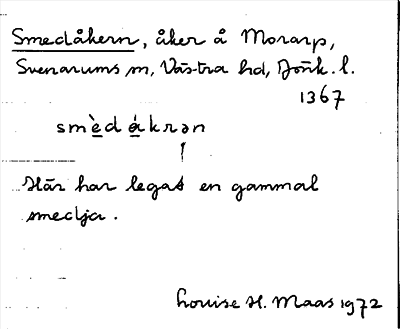 Smedåkern, åker å Morarp,
Svenarums sn, Västra hd, Jönk. l.
1367
smèdákrən
Här har legat en gammal
smedja.
Louise H. Maas 1972